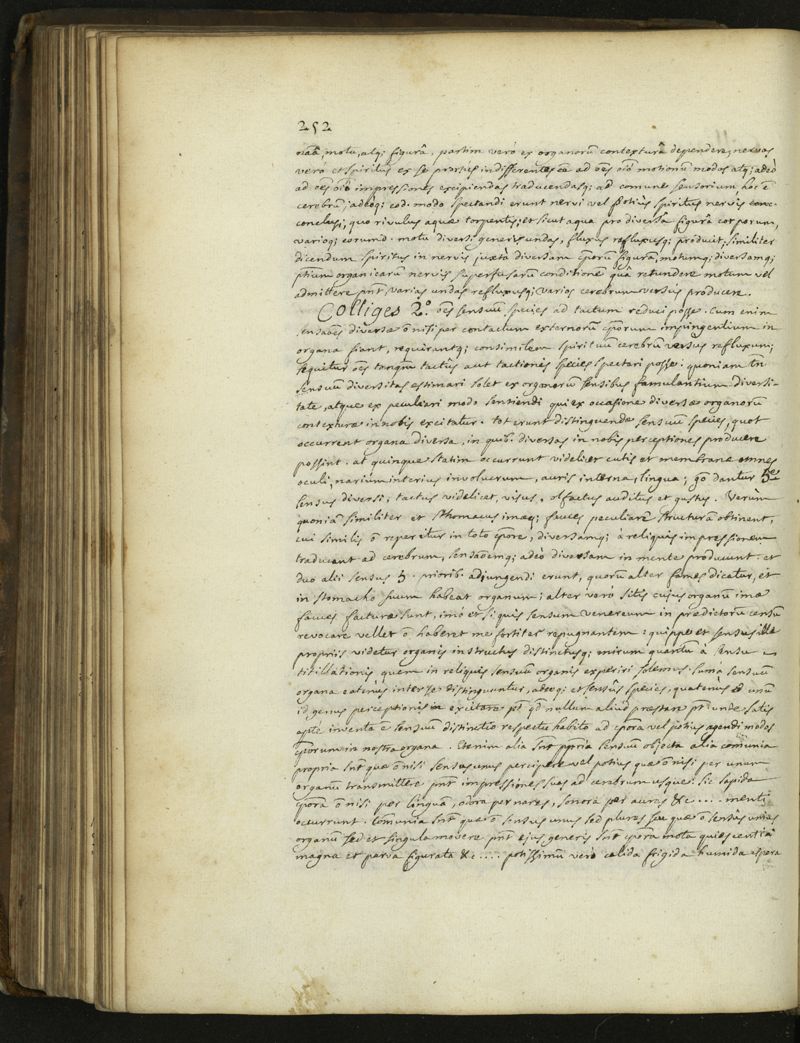 252
motu, atq; figurâ, partim verò ex organorũ contexturâ dependere; nervos
verò et spiritus ex se prorsùs indifferentes eẽ ad oẽs oĩo motionũ modos atq; adeò
ad oẽs oĩo impressiones excipiendas traducendasq; ad comune sensorium, hoc ẽ
cerebrũ; adeòq; eod. modo spectandi erunt nervi vel potiùs spiritus nervis
conclusi, quo rivulus aquæ torpentis; et sicut aqua pro diversâ figurâ corporum,
varioq; eorumd. motu diversi generis undas, fluxus refluxusq; producit, similiter
dicendum spiritus in nervis juxtà diversam cporũ figurã, motumq; diversamq;
ptium organicarũ nervis superfusarũ conditione quâ retundere motum vel
admittere pnt varias undas refluxusq; varios cerebrum versus producere.
Colliges 2.º oẽs sensuũ species ad tactum reduci posse. Cum enim
sensaões diversæ õ nisi per contactum externorũ cporum impingentium in
organa fiant, requirantq; consimilem spirituũ cerebrũ versus refluxum;
sequitur oẽs tanqm tactûs aut tactionis species spectari posse: quoniam tñ
sensuũ diversitas estimari solet ex organorũ sensibus famulantium diversi-
tate, atque ex peculiari modo sentiendi qui ex occasione diversæ organorũ
contexturæ in nobis excitatur. tot erunt distinguendæ sensuũ species, quot
occurrent organa diversa, in quib. diversas in nobis perceptiones producere
possint. at quinque statim occurrunt videlicet cutis et membranæ omnes
oculi, narium interius involucrum, auris interna, lingua; gõ dantur 5e
sensus diversi; tactus videlicet, visus, olfactus auditus et gustus. Verum
quoniã similiter et sthomacus imæq; fauces peculiarẽ structurã obtinent,
cui similis õ reperitur in toto cpore, diversamq; à reliquis impressionem
traducant ad cerebrum, sensaõemq; adeò diversam in mente producunt. et
duo alii sensus 5. priorib. adjungendi erunt, quorũ alter fames dicatur, et
in stomacho suum habeat organum; alter verò sitis cujus organũ imæ
fauces facturæ sunt, imò et si quis sensum venereum in prædictorũ censũ
revocare vellet õ haberet me fortiter repugnantem: quippe et sensus ille
propriis videtur organis instructus distinctusq; mirum quantũ à sensu
titillationis quem in reliquis sensuũ organis experiri solemus. sumã sensuũ
organa eatenùs inter se distinguuntur, adeoq; et sensûs species, quatenùs unũ
id genus perceptionis excitare pt qd nullum aliud præstare pt: unde satis
apte inventa ẽ sensuũ distinctio respectu habito ad cpora vel potius agendi modos
cporum in nostra organa. Etenim alia snt ppria sensuũ objecta alia comunia
propria snt quæ õ nisi sensus unus percipere vel potius quæ õ nisi per unum
organũ transmittere pnt impressiones suas ad cerebrum usque. Sic sapida
cpora õ nisi per linguã, odora per nares, sonora per aures &c .... menti
occurrunt. Comunia snt quæ õ sensus unus sed plures sive quæ õ sensûs unius
organũ sed et singula movere pnt ejus generis snt cpora mota quiescentia
magna et parva figurata &c .... potissimũ verò calida frigida humida aspera